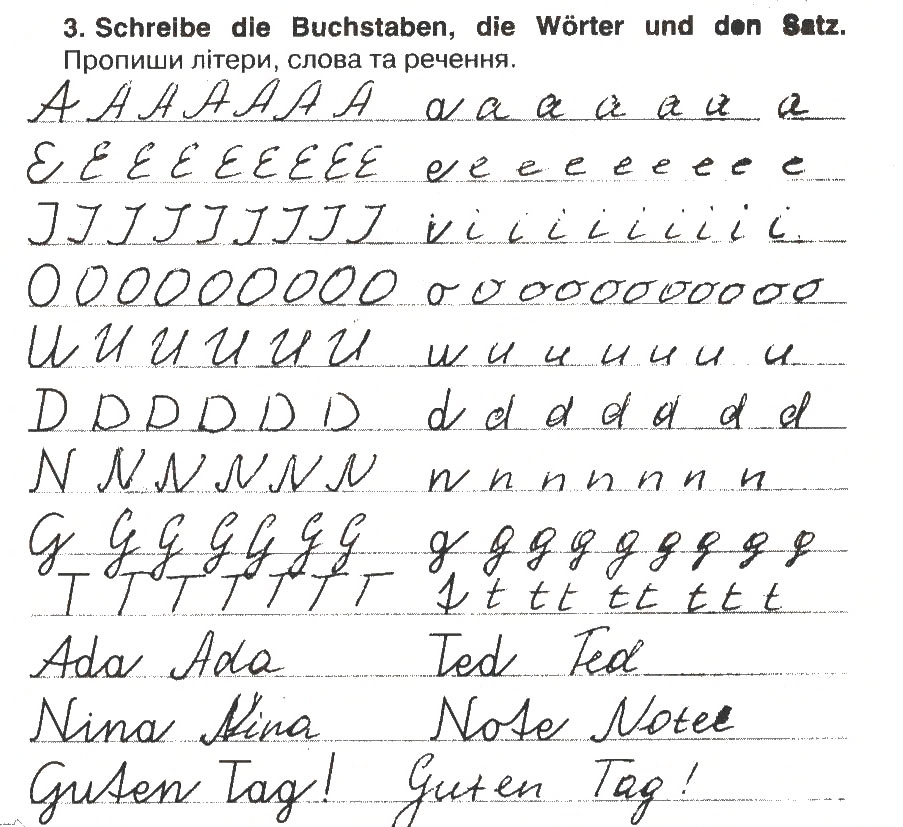 3. Schreibe die Buchstaben, die Wörter und den Satz.
Пропиши літери, слова та речення.
A A A A A A A a a a a a a a
E E E E E E E E E e e e e e e e e e
I I I I I I I I I i i i i i i i i i i
O O O O O O O O O o o o o o o o o o o o
U U U U U U u u u u u u u
D D D D D D d d d d d d d
N N N N N N n n n n n n n
G G G G G G G g g g g g g g g g
T T T T T T T t t t t t t t t t
Ada Ada Ted Ted
Nina Nina Note Note
Guten Tag! Guten Tag!